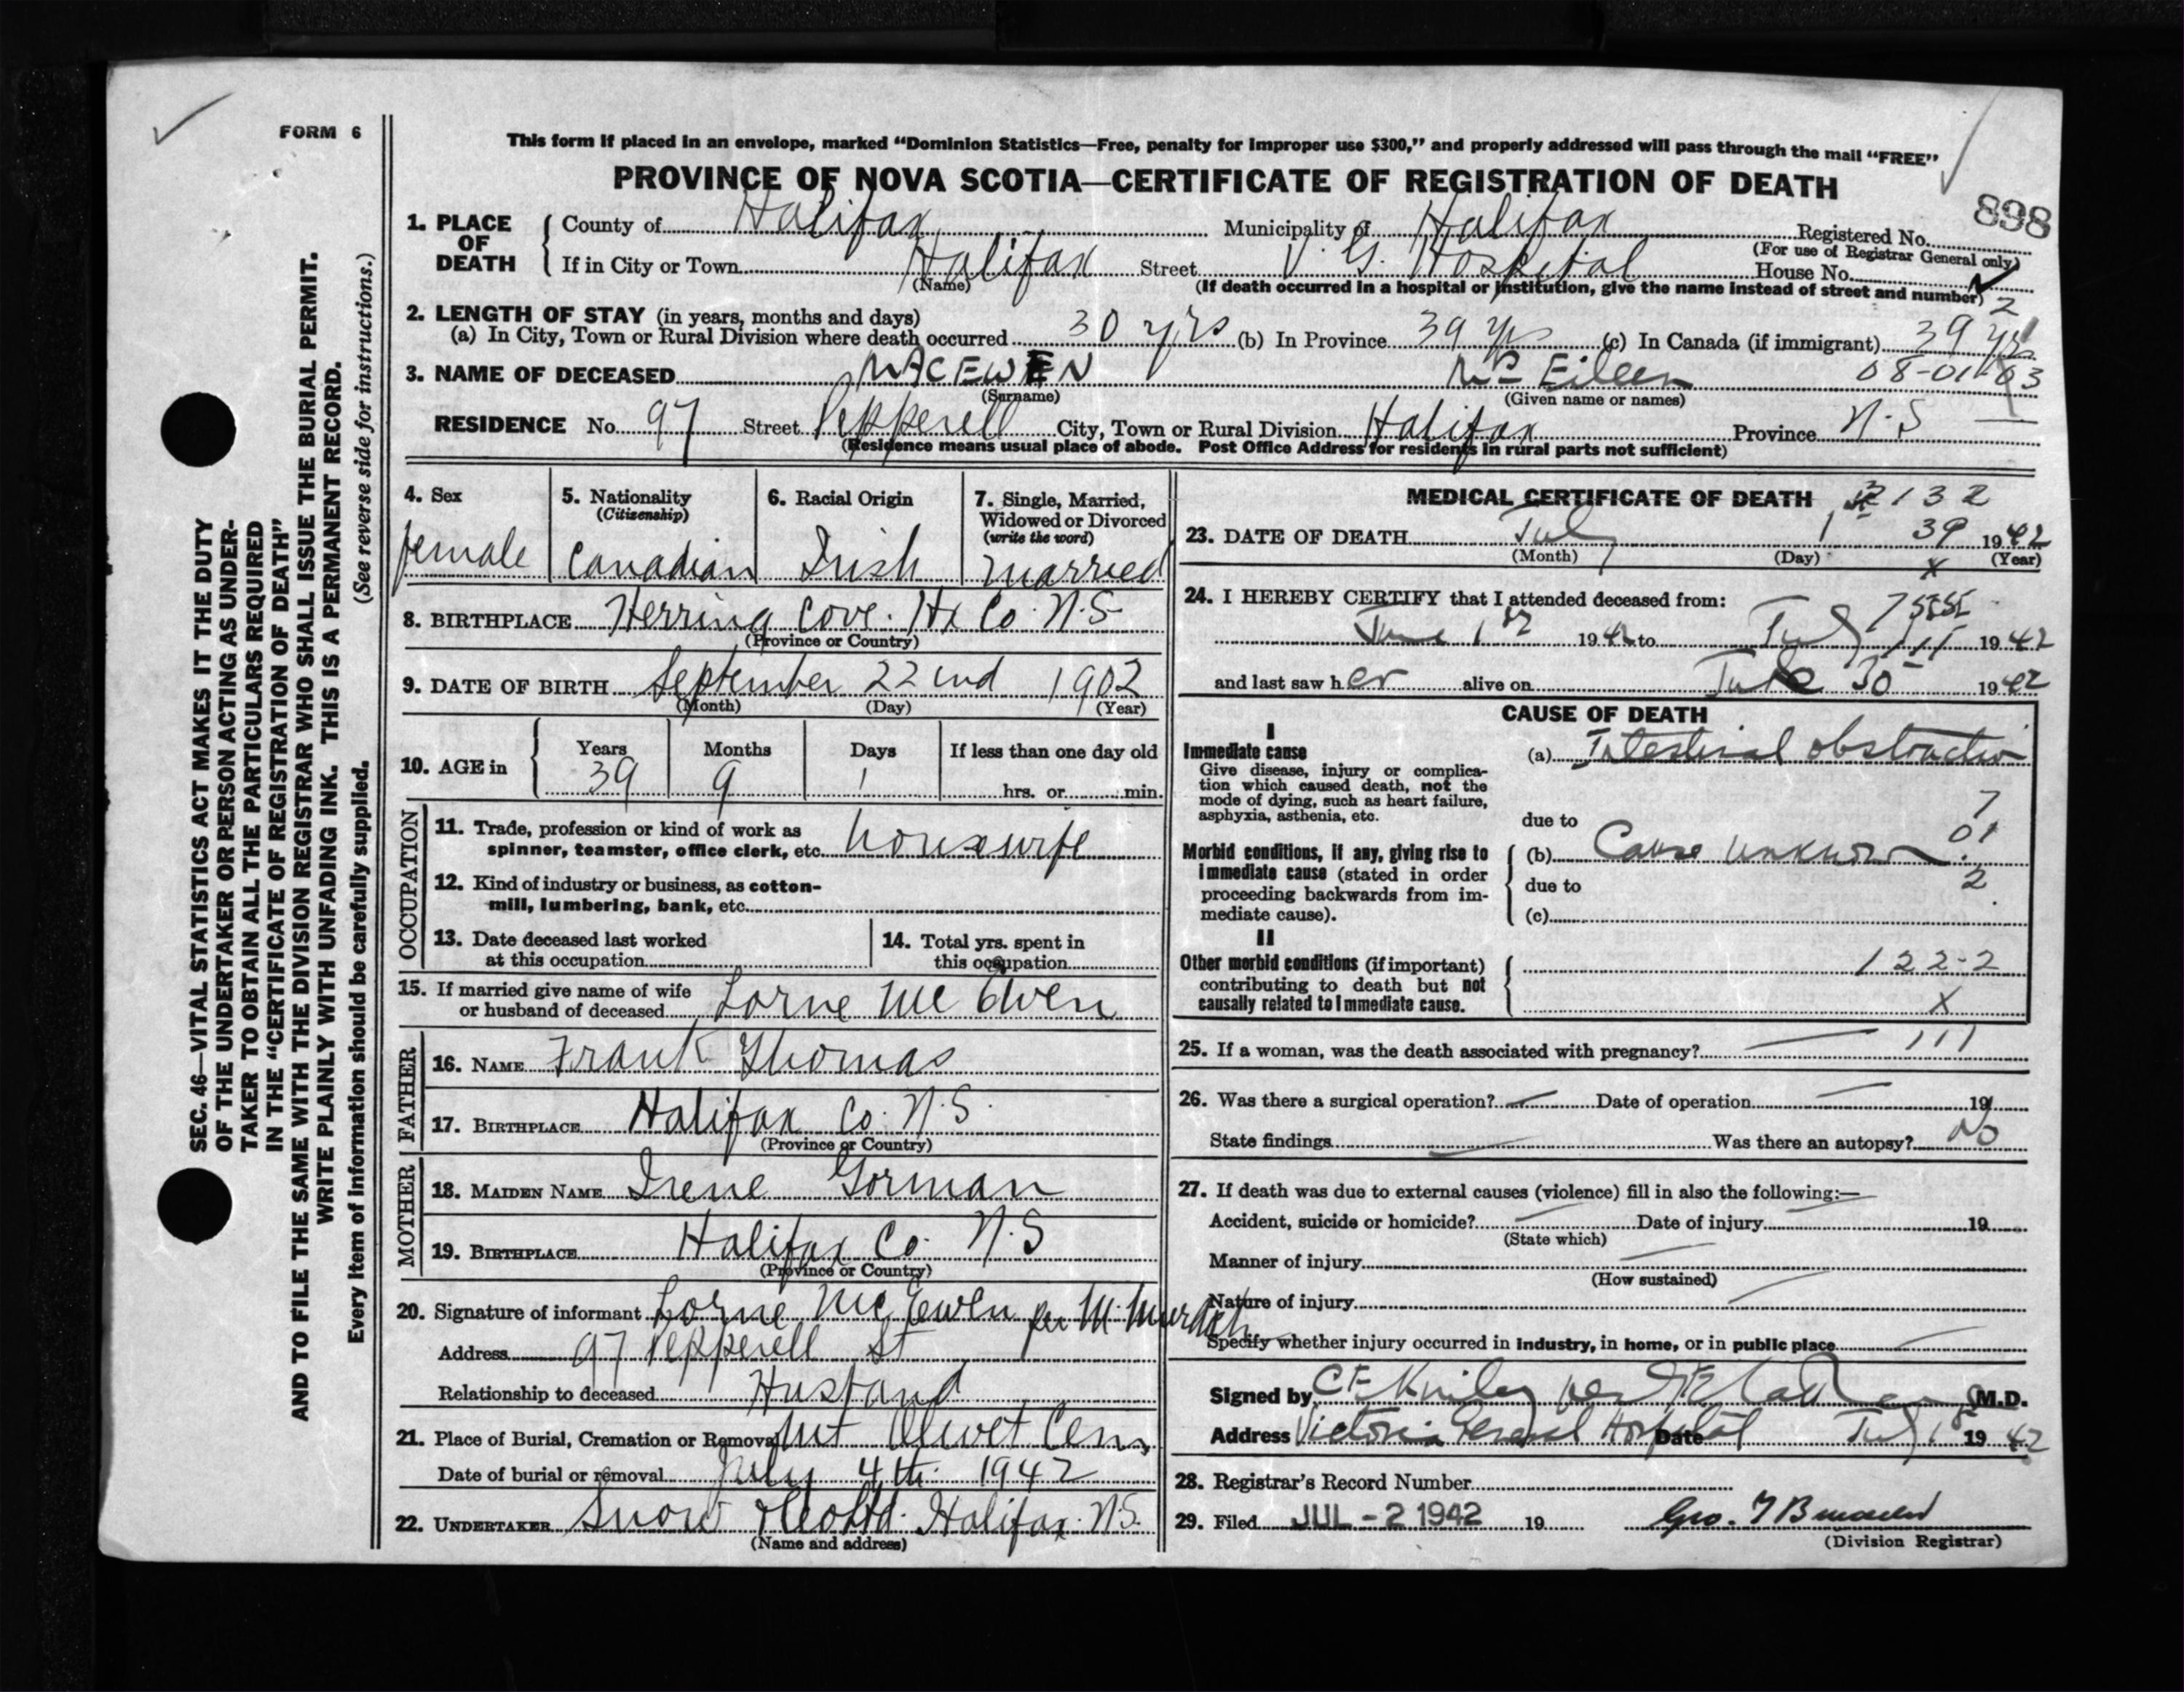 FORM 6
This form if placed in an envelope, marked “Dominion Statistics—Free, penalty for improper use $300,” and properly addressed will pass through the mail “FREE”
PROVINCE OF NOVA SCOTIA—CERTIFICATE OF REGISTRATION OF DEATH
898
1. PLACE OF DEATH
County of Halifax Municipality of Halifax Registered No.
(For use of Registrar General only)
If in City or Town Halifax Street V. G. Hospital House No.
(Name) (If death occurred in a hospital or institution, give the name instead of street and number)
2
2. LENGTH OF STAY (in years, months and days)
(a) In City, Town or Rural Division where death occurred 30 yrs (b) In Province 39 yrs (c) In Canada (if immigrant) 39 yrs
3. NAME OF DECEASED MACEWEN Eileen 08-01-03
(Surname) (Given name or names)
RESIDENCE No. 97 Street Pepperell City, Town or Rural Division Halifax Province N.S
(Residence means usual place of abode. Post Office Address for residents in rural parts not sufficient)
4. Sex
female
5. Nationality
(Citizenship)
Canadian
6. Racial Origin
Irish
7. Single, Married,
Widowed or Divorced
(write the word)
Married
8. BIRTHPLACE Herring Cove. Hx Co N.S
(Province or Country)
9. DATE OF BIRTH September 22nd 1902
(Month) (Day) (Year)
10. AGE in
Years Months Days If less than one day old
39 9 1 hrs. or min.
OCCUPATION
11. Trade, profession or kind of work as
spinner, teamster, office clerk, etc. housewife
12. Kind of industry or business, as cotton-
mill, lumbering, bank, etc.
13. Date deceased last worked
at this occupation
14. Total yrs. spent in
this occupation
15. If married give name of wife
or husband of deceased Lorne McEwen
FATHER
16. NAME Frank Thomas
17. BIRTHPLACE Halifax Co. N.S.
(Province or Country)
MOTHER
18. MAIDEN NAME Irene Gorman
19. BIRTHPLACE Halifax Co. N.S
(Province or Country)
20. Signature of informant Lorne McEwen per M. Murdoch
Address 97 Pepperell St
Relationship to deceased Husband
21. Place of Burial, Cremation or Removal Mt Olivet Cem
Date of burial or removal July 4th. 1942
22. UNDERTAKER Snow & Co Ltd. Halifax. N.S.
(Name and address)
MEDICAL CERTIFICATE OF DEATH
132
23. DATE OF DEATH July 1 39 1942
(Month) (Day) (Year)
x
24. I HEREBY CERTIFY that I attended deceased from:
June 1st 1942 to July 1942
and last saw her alive on 30 1942
CAUSE OF DEATH
I
Immediate cause
Give disease, injury or complica-
tion which caused death, not the
mode of dying, such as heart failure,
asphyxia, asthenia, etc.
(a) Intestinal obstruction
7
due to
01
Morbid conditions, if any, giving rise to
immediate cause (stated in order
proceeding backwards from im-
mediate cause).
(b) Cause unknown
due to
2
(c)
II
Other morbid conditions (if important)
contributing to death but not
causally related to immediate cause.
122-2
X
25. If a woman, was the death associated with pregnancy? — 111
26. Was there a surgical operation? — Date of operation — 19
State findings — Was there an autopsy? No
27. If death was due to external causes (violence) fill in also the following:—
Accident, suicide or homicide? — Date of injury — 19
(State which)
Manner of injury —
(How sustained)
Nature of injury —
Specify whether injury occurred in industry, in home, or in public place —
Signed by C.F. per M.D.
Address Victoria General Hospital Date July 1st 1942
28. Registrar's Record Number
29. Filed JUL - 2 1942 19 Geo.
(Division Registrar)
SEC. 46—VITAL STATISTICS ACT MAKES IT THE DUTY
OF THE UNDERTAKER OR PERSON ACTING AS UNDER-
TAKER TO OBTAIN ALL THE PARTICULARS REQUIRED
IN THE “CERTIFICATE OF REGISTRATION OF DEATH”
AND TO FILE THE SAME WITH THE DIVISION REGISTRAR WHO SHALL ISSUE THE BURIAL PERMIT.
WRITE PLAINLY WITH UNFADING INK. THIS IS A PERMANENT RECORD.
Every item of information should be carefully supplied. (See reverse side for instructions.)